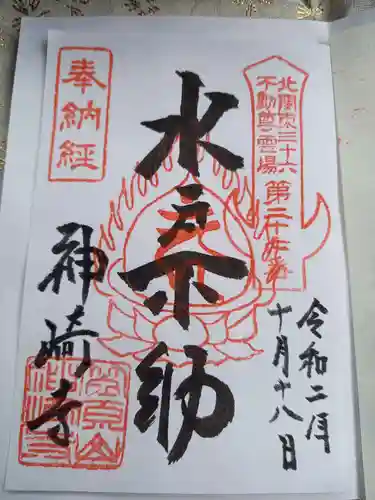 北関東三十六
不動尊霊場
第二十九番
奉納経
水戸不動
神崎寺
令和二年
十月十八日